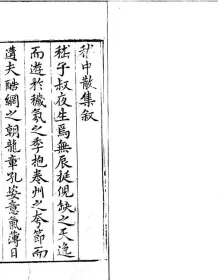 嵇中散集叙
嵇子叔夜生焉無辰挺俔缺之天逸
而遊於穢氣之季抱卷州之夸節而
遘夫酷網之朝龍章孔姿意氣薄日